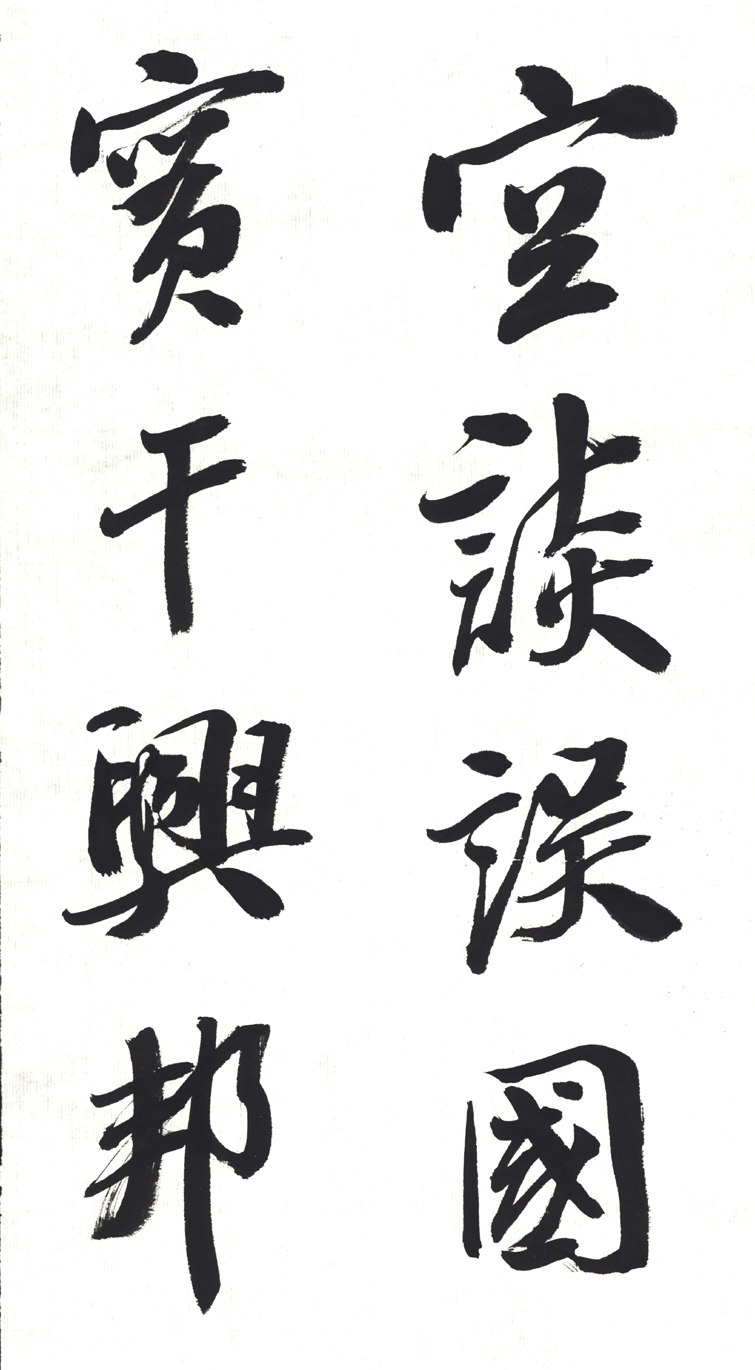 空談誤國
實干興邦